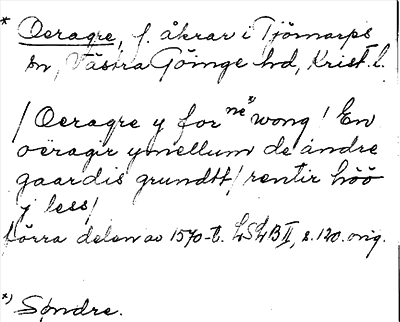 * Oeragre, f. åkrar i Tjörnarps
sn, Västra Göinge hd, Krist. l.
/ Oeragre y for ne*) wong / En
oëragir ymellum de andre
gaardis grundtt / rentir höö
y less /
förra delen av 1570-t. LSLB II, s. 120. orig.
*) Søndre.